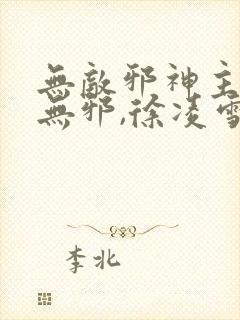 無敵邪神主
無邪,徐凌雪
李北